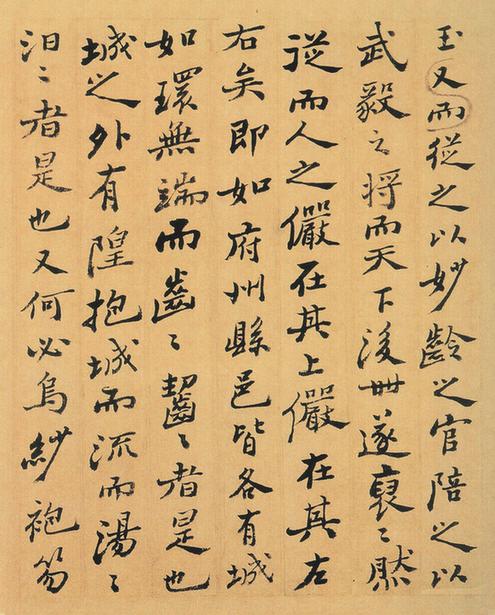 玉又而從之以妙齡之官陪之以
武毅之將而天下後世遂裒〻然
從而人之儼在其上儼在其左
右矣即如府州縣邑皆各有城
如環無端而齒〻齧〻者是也
城之外有隍抱城而流而湯〻
汩〻者是也又何必烏紗袍笏